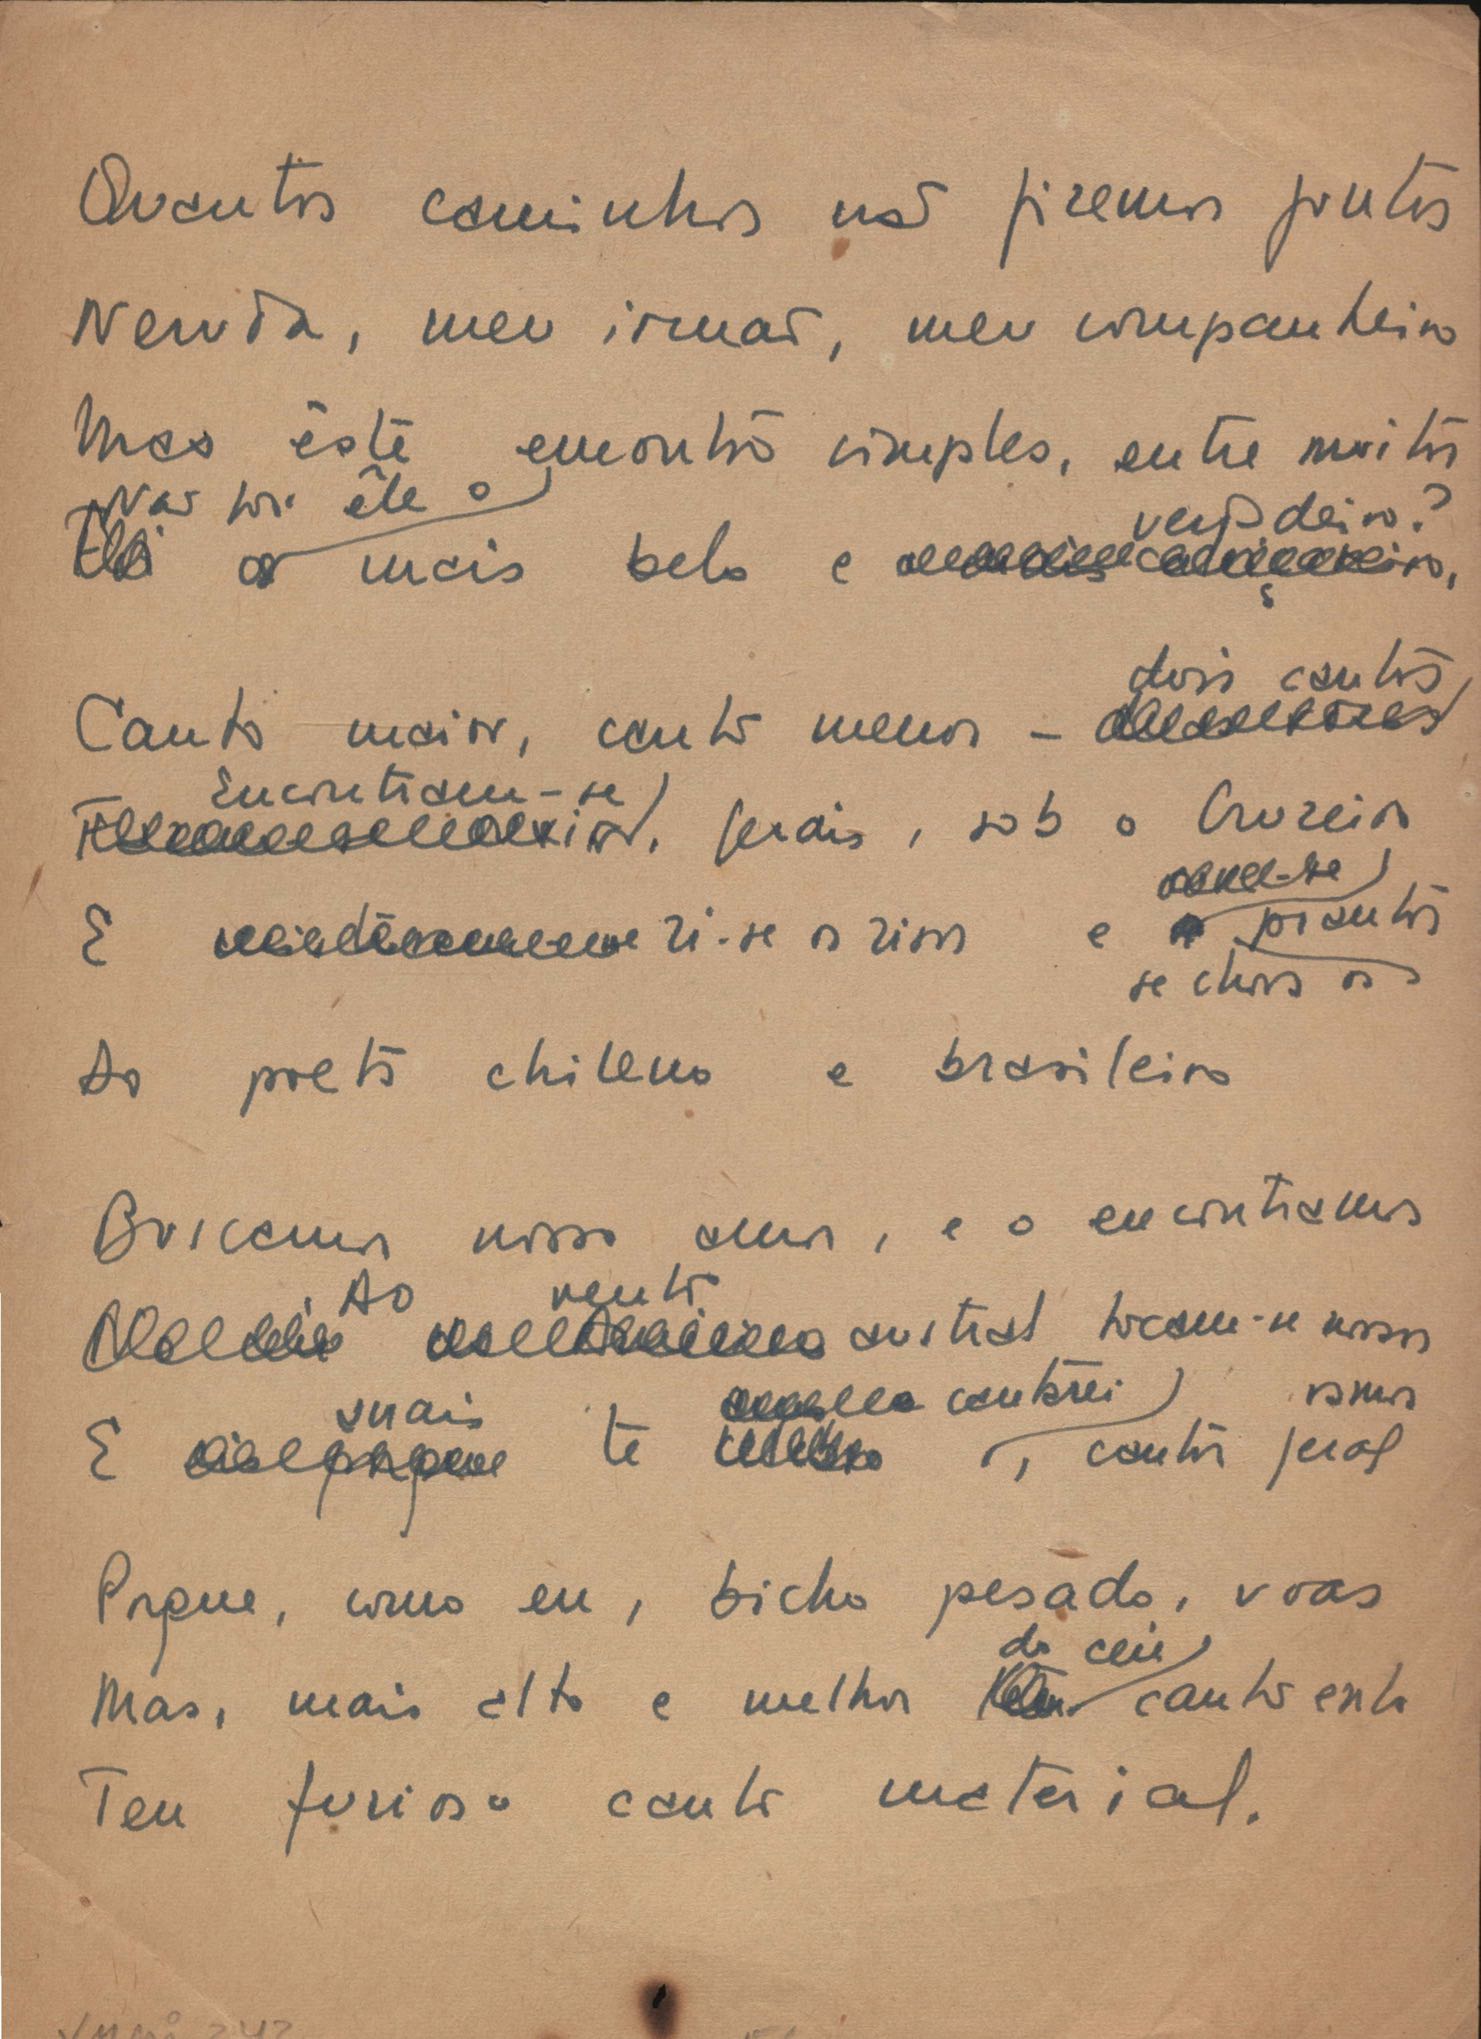 Quantos caminhos não fizemos juntos
Neruda, meu irmão, meu companheiro
Mas êste encontro simples, entre muitos
Não foi êle o
verdadeiro?
mais belo e
dois cantos
Canto maior, canto menor –
Encontram-se
gerais, sob o Cruzeiro
E ri-se o riso e prantos
se chora os
Do poeta chileno e brasileiro
Buscamos nosso amor, e o encontramos
Ao vento
austral tocam-se nossos
ramos
mais cantarei
E te , canto geral
Porque, como eu, bicho pesado, voas
Mas, mais alto e melhor
do céu
canto
Teu furioso canto material.